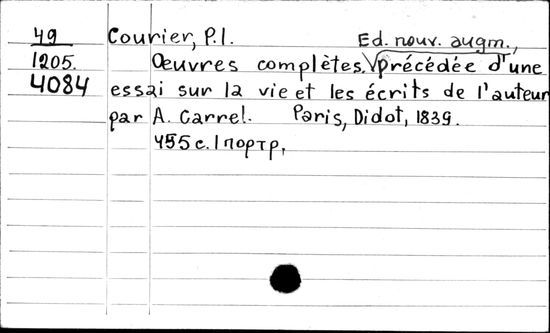 49 Courier, P.I. Ed. nouv. augm.,
1205. Œuvres complètes, précédée d'une
4084 essai sur la vie et les écrits de l'auteur
par A. Carrel. Paris, Didot, 1839.
455 с. 1 портр,